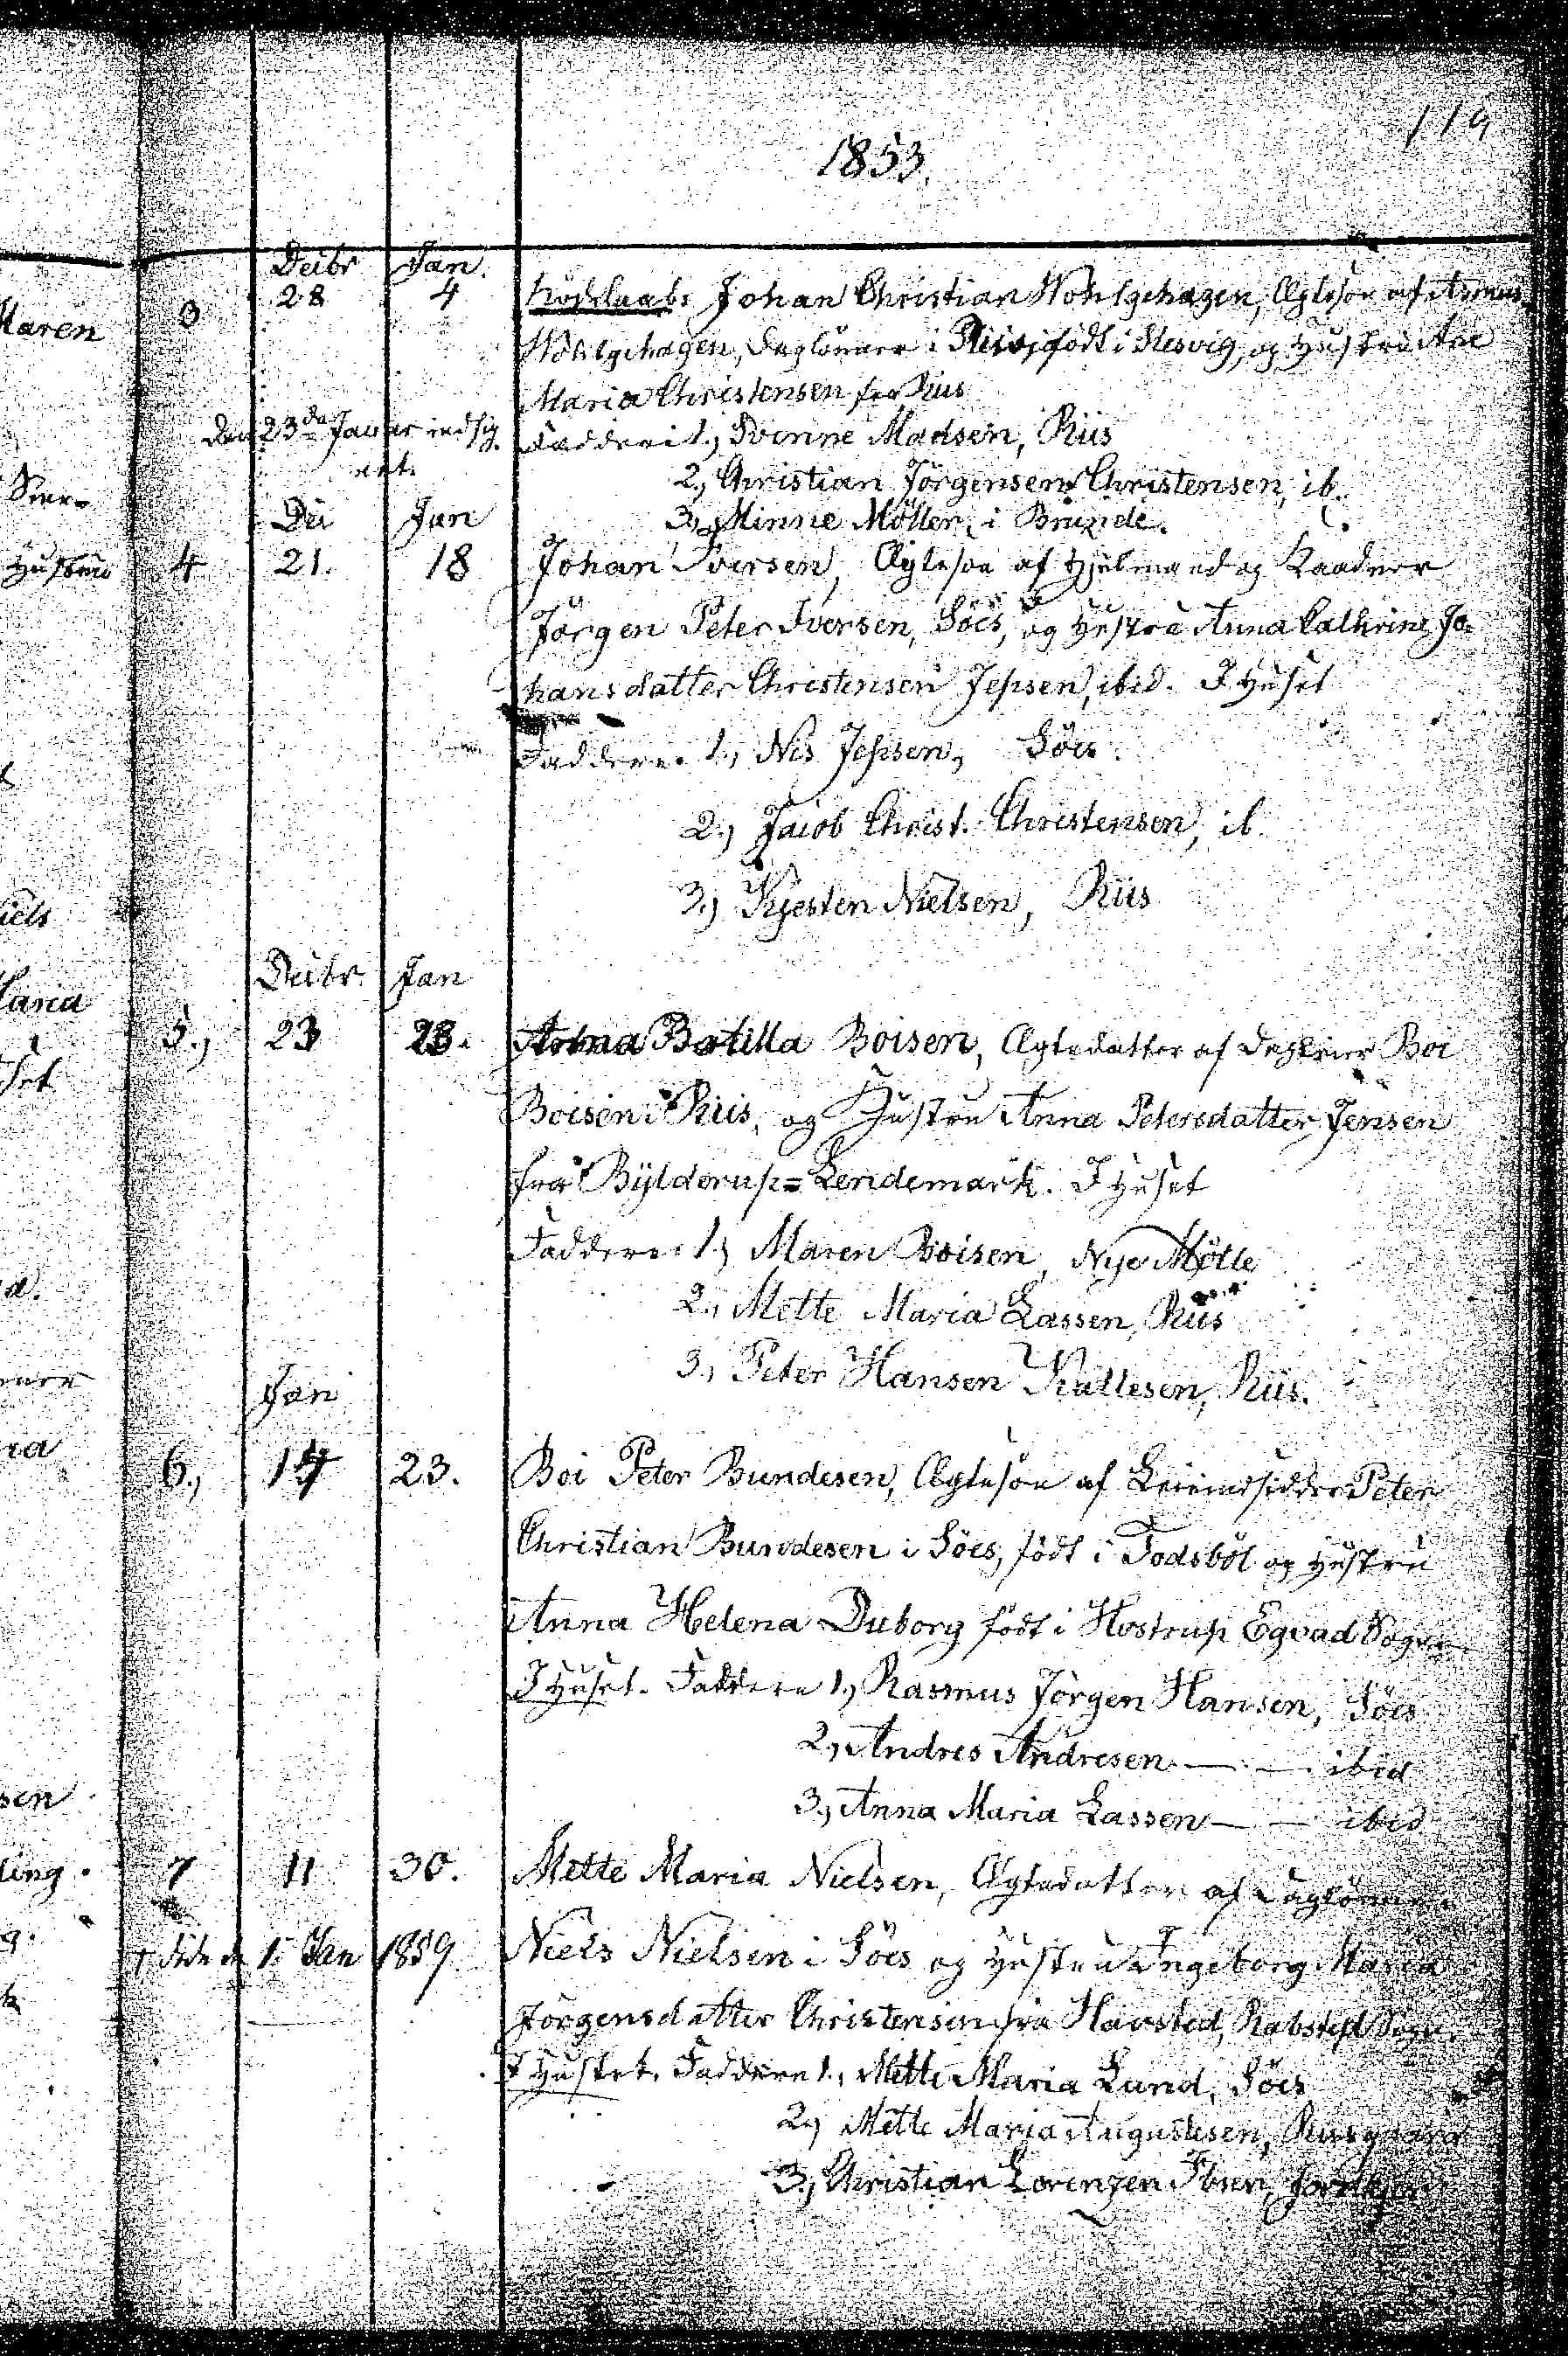 119
1853.
Decbr Jan.
3 28 4 Johan Christian Wohlgehagen, Ægtesøn af
Wohlgehagen, Daglönner i Riis, født i Slesvig, og Hustru Ane
Maria Christensen fra Riis
Den 23de Januar indsig
net.
Faddere: 1., Svenne Madsen, Riis
2., Christian Jörgensen Christensen, ib.
3., Minne Möller, i Brunde.
Dec Jan
4 21. 18 Johan Iversen, Ægtesøn af Hjulmand og Kaadner
Jörgen Peter Iversen, Söes, og Hustru Anna Cathrine Jo-
hansdatter Christensen Jepsen, ibid. I Huset
Faddere: 1., Nis Jepsen, Söes.
2., Jacob Christ. Christensen, ib
3., Kjesten Nielsen, Riis
Decbr. Jan
5., 23 23. Anna Botilla Boisen, Ægtedatter af Boi
Boisen i Riis, og Hustru Anna Petersdatter Jensen
fra Bÿlderup=Lendemark. I Huset
Faddere: 1., Maren Boisen, Nye Mölle
2., Mette Maria Lassen, Riis
3., Peter Hansen Kallesen, Riis.
Jan
6., 14 23. Boi Peter Bundesen, Ægtesøn af Leieindsidder Peter
Christian Bundesen i Söes, født i Todsböl og Hustru
Anna Helena Duborg født i Hostrup Egvad Sogn
I Huset. Faddere 1., Rasmus Jörgen Hansen, Söes
2., Andres Andresen — — ibid
3., Anna Maria Lassen — — ibid
7 11 30. Mette Maria Nielsen, Ægtedatter af Daglönner
1. Jan 1859. Niels Nielsen i Söes og Hustru Ingeborg Maria
Jörgensdatter Christensen fra Havsted, Rabsted Sogn.
I Huset. Faddere 1., Mette Maria Lund, Söes
2., Mette Maria Augustesen, Riisgaard
3., Christian Lorenzen Ibsen,
Maren
Hustru
iels
Maria
set
a.
sen
ling.